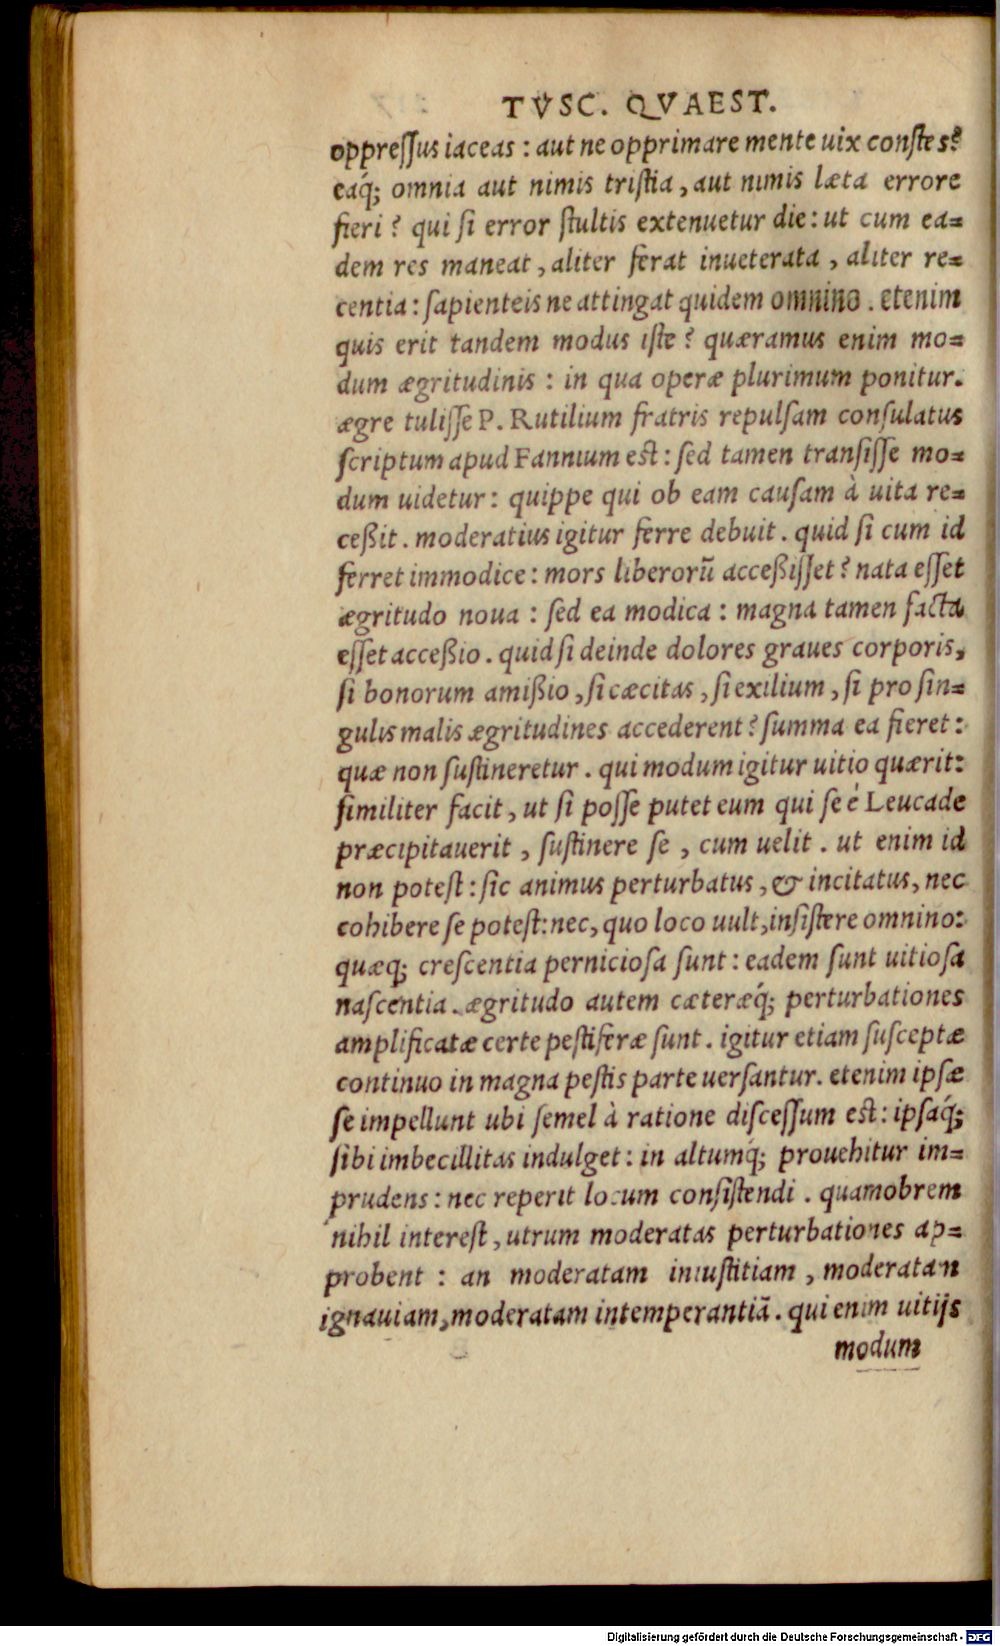 TVSC. QVAEST.
oppreſſus iaceas : aut ne opprimare mente uix conſtes?
eaq́; omnia aut nimis triſtia, aut nimis læta errore
fieri? qui ſi error ſtultis extenuetur die: ut cum ea=
dem res maneat, aliter ferat inueterata, aliter re=
centia: ſapienteis ne attingat quidem omnino. etenim
quis erit tandem modus iſte? quæramus enim mo=
dum ægritudinis : in qua operæ plurimum ponitur.
ægre tuliſſe P. Rutilium fratris repulſam conſulatus
ſcriptum apud Fannium est: ſed tamen tranſiſſe mo=
dum uidetur: quippe qui ob eam cauſam à uita re=
ceßit. moderatius igitur ferre debuit. quid ſi cum id
ferret immodice: mors liberorū acceßiſſet? nata eſſet
ægritudo noua : ſed ea modica : magna tamen facta
eſſet acceßio. quid ſi deinde dolores graues corporis,
ſi bonorum amißio, ſi cæcitas, ſi exilium, ſi pro ſin=
gulis malis ægritudines accederent? ſumma ea fieret:
quæ non ſuſtineretur. qui modum igitur uitio quærit:
ſimiliter facit, ut ſi poſſe putet eum qui ſe é Leucade
præcipitauerit, ſuſtinere ſe, cum uelit. ut enim id
non poteſt: ſic animus perturbatus, & incitatus, nec
cohibere ſe poteſt: nec, quo loco uult, inſiſtere omnino:
quæq; creſcentia pernicioſa ſunt: eadem ſunt uitioſa
naſcentia. ægritudo autem cæteræq́; perturbationes
amplificatæ certe peſtiferæ ſunt. igitur etiam ſuſceptæ
continuo in magna peſtis parte uerſantur. etenim ipſæ
ſe impellunt ubi ſemel à ratione diſceſſum est: ipſaq́;
ſibi imbecillitas indulget: in altumq́; prouehitur im=
prudens: nec reperit locum conſiſtendi. quamobrem
nihil intereſt, utrum moderatas perturbationes ap=
probent : an moderatam iniuſtitiam, moderatan
ignauiam, moderatam intemperantiā. qui enim uitijs
modum
Digitalisierung gefördert durch die Deutsche Forschungsgemeinschaft - DFG